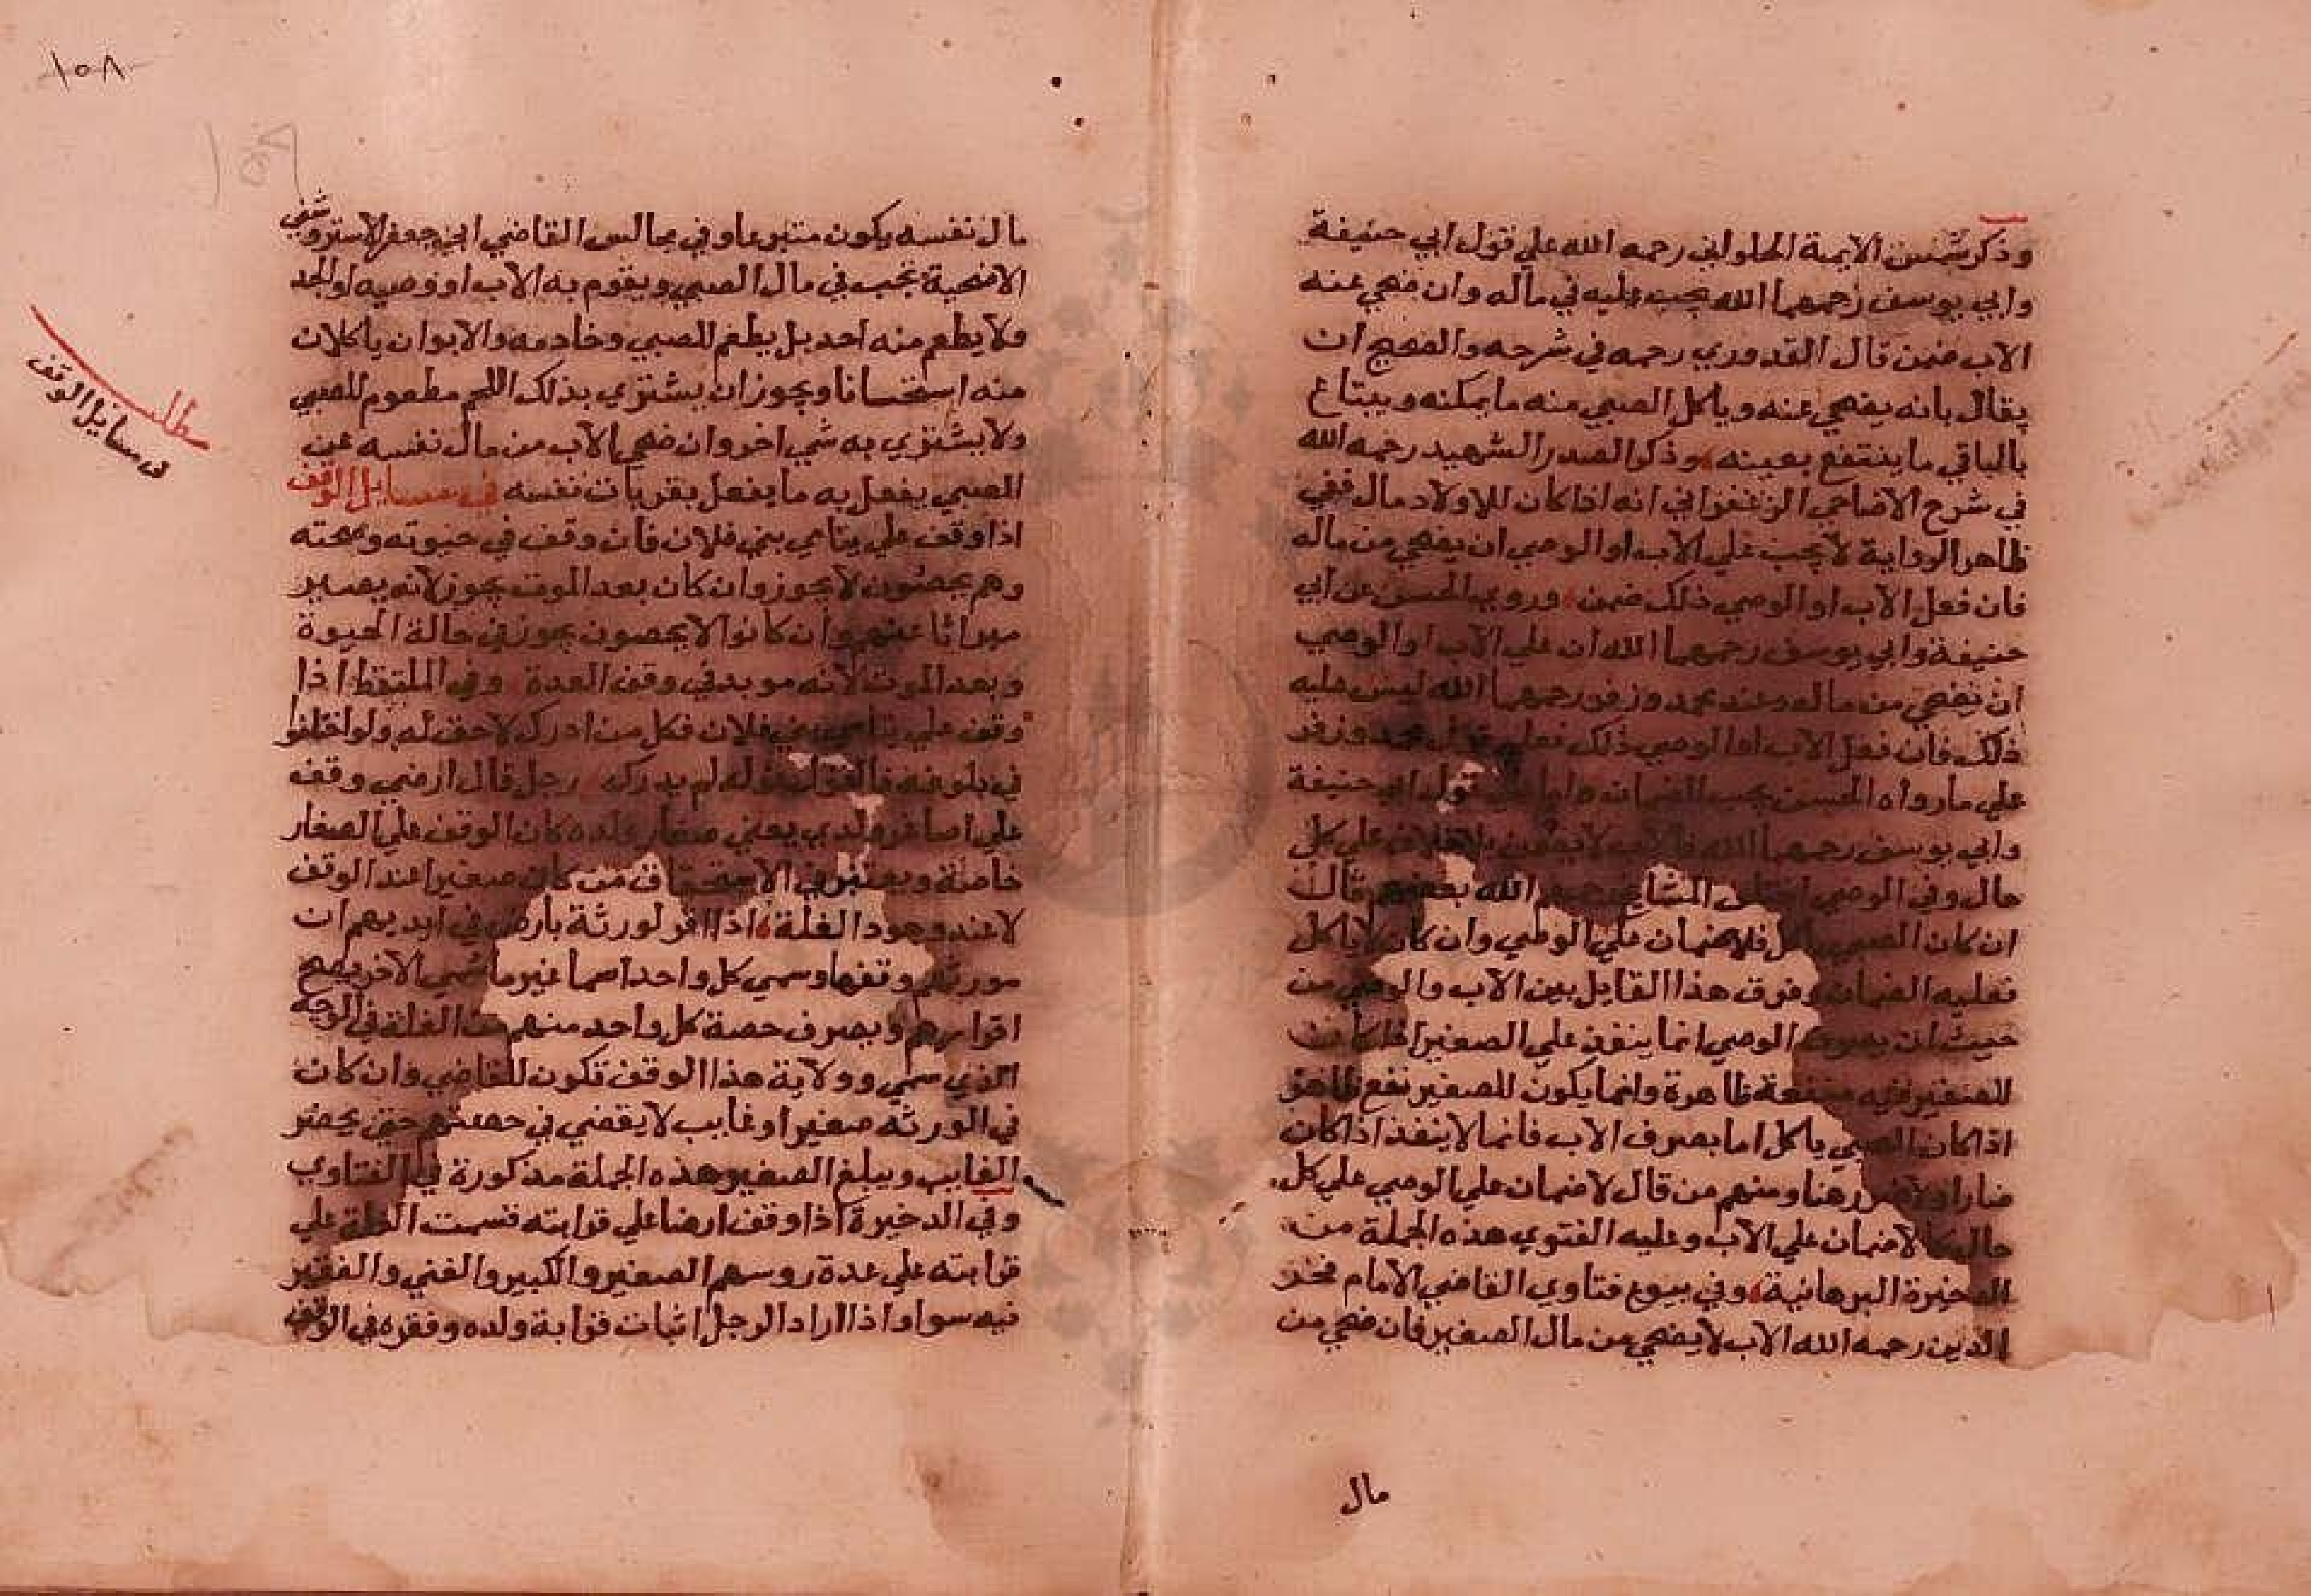 وذكر شمس الايمة الحلواني رحمه الله علي قول ابي حنيفة
وابي يوسف رحمهما الله يجب عليه في ماله وان ضحي عنه
الاب ضمن قال القدوري رحمه في شرحه والصحيح ان
يقال بانه يضحي عنه وياكل الصبي منه ما يمكنه ويبتاع
بالباقي ما ينتفع بعينه وذكر الصدر الشهيد رحمه الله
في شرح الاضاحي الزعفراني انه اذا كان للاولاد مال ففي
ظاهر الرواية لا يجب علي الاب او الوصي ان يضحي من ماله
فان فعل الاب او الوصي ذلك ضمن وروي الحسن عن ابي
حنيفة وابي يوسف رحمهما الله ان علي الاب او الوصي
ان يضحي من ماله وعند محمد وزفر رحمهما الله ليس عليه
ذلك فان فعل الاب او الوصي ذلك فعلي قول محمد وزفر
علي ما رواه الحسن يجب الضمان واما علي قول ابي حنيفة
وابي يوسف رحمهما الله فالاب لا يضمن علي كل
حال وفي الوصي اختلف المشايخ رحمهم الله بعضهم قال
ان كان الصبي ياكل فلا ضمان علي الوصي وان كان لا ياكل
فعليه الضمان وفرق هذا القايل بين الاب والوصي من
حيث ان الوصي انما ينفق علي الصغير اذا كانت
للصغير فيه منفعة ظاهرة وانما يكون للصغير نفع ظاهر
اذا كان الصبي ياكل اما بصرف الاب فانما لا ينفذ اذا كان
ضارا ولا ضرر هنا ومنهم من قال لا ضمان علي الوصي علي كل
حال كما لا ضمان علي الاب وعليه الفتوي هذه الجملة من
الذخيرة البرهانية وفي بيوع فتاوي القاضي الامام فخر
الدين رحمه الله الاب لا يضحي من مال الصغير فان ضحي من
مال
١٥٨
مال نفسه يكون متبرعا وفي مجالس القاضي ابي جعفر الاستروشني
الاضحية تجب في مال الصبي ويقوم به الاب او وصيه او الجد
ولا يطعم منه احد بل يطعم للصبي وخادمه والابوان ياكلان
منه استحسانا ويجوز ان يشتري بذلك اللحم مطعوم للصبي
ولا يشتري به شي اخر وان ضحي الاب من مال نفسه عن
الصبي يفعل به ما يفعل بقربات نفسه في مسايل الوقف
مطلب
في مسايل الوقف
اذا وقف علي يتامي بني فلان فان وقف في حيوته وصحته
وهم يحصون لا يجوز وان كان بعد الموت يجوز لانه يصير
ميراثا عنهم وان كانوا لا يحصون يجوز في حالة الحيوة
وبعد الموت لانه موبد في وقف العدة وفي الملتقط اذا
وقف علي يتامي بني فلان فكل من ادرك لا حق له ولو اختلفوا
في بلوغه فالقول قوله لم يدرك رجل قال ارضي وقف
علي اصاغر ولدي يعني صغار ولده كان الوقف علي الصغار
خاصة ويعتبر في الاستحقاق من كان صغيرا عند الوقف
لا عند وجود الغلة اذا اقر لورثة بارض في ايديهم ان
مورثهم وقفها وسمي كل واحد اسما غير ما سمي الاخر يصح
اقرارهم ويصرف حصة كل واحد منهم من الغلة في الوجه
الذي سمي وولاية هذا الوقف تكون للقاضي وان كان
في الورثه صغير او غايب لا يقضي في حصتهم حتي يحضر
الغايب ويبلغ الصغير وهذه الجملة مذكورة في الفتاوي
وفي الدخيرة اذا وقف ارضا علي قرابته قسمت الغلة علي
قرابته علي عدة روسهم الصغير والكبير والغني والفقير
فيه سوا واذا اراد الرجل اثبات قرابة ولده وفقره في الوقف